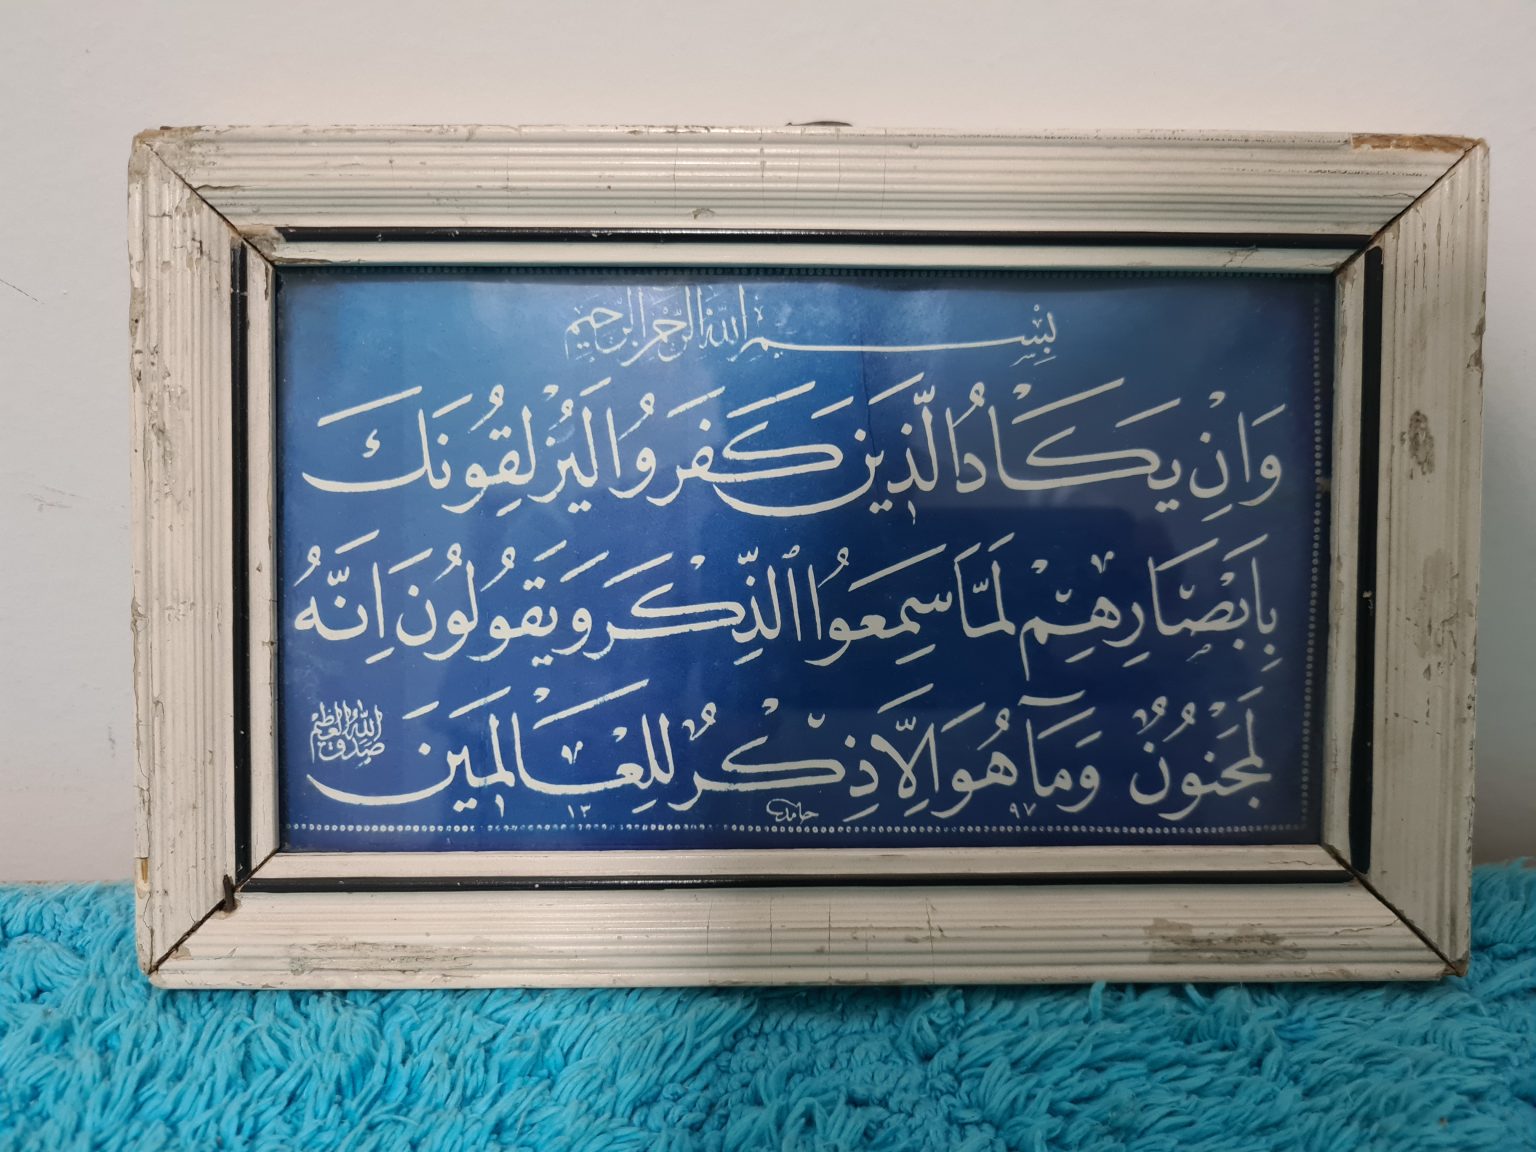 بِسْمِ اللهِ الرَّحْمنِ الرَّحِيمِ
وَاِنْ يَكَادُ الَّذِينَ كَفَرُوا لَيُزْلِقُونَكَ
بِاَبْصَارِهِمْ لَمَّا سَمِعُوا الذِّكْرَ وَيَقُولُونَ اِنَّهُ
لَمَجْنُونٌ وَمَآ هُوَ اِلَّا ذِكْرٌ لِلْعَالَمِينَ
صَدَقَ اللهُ الْعَظِيم
١٣ حامد ٩٧